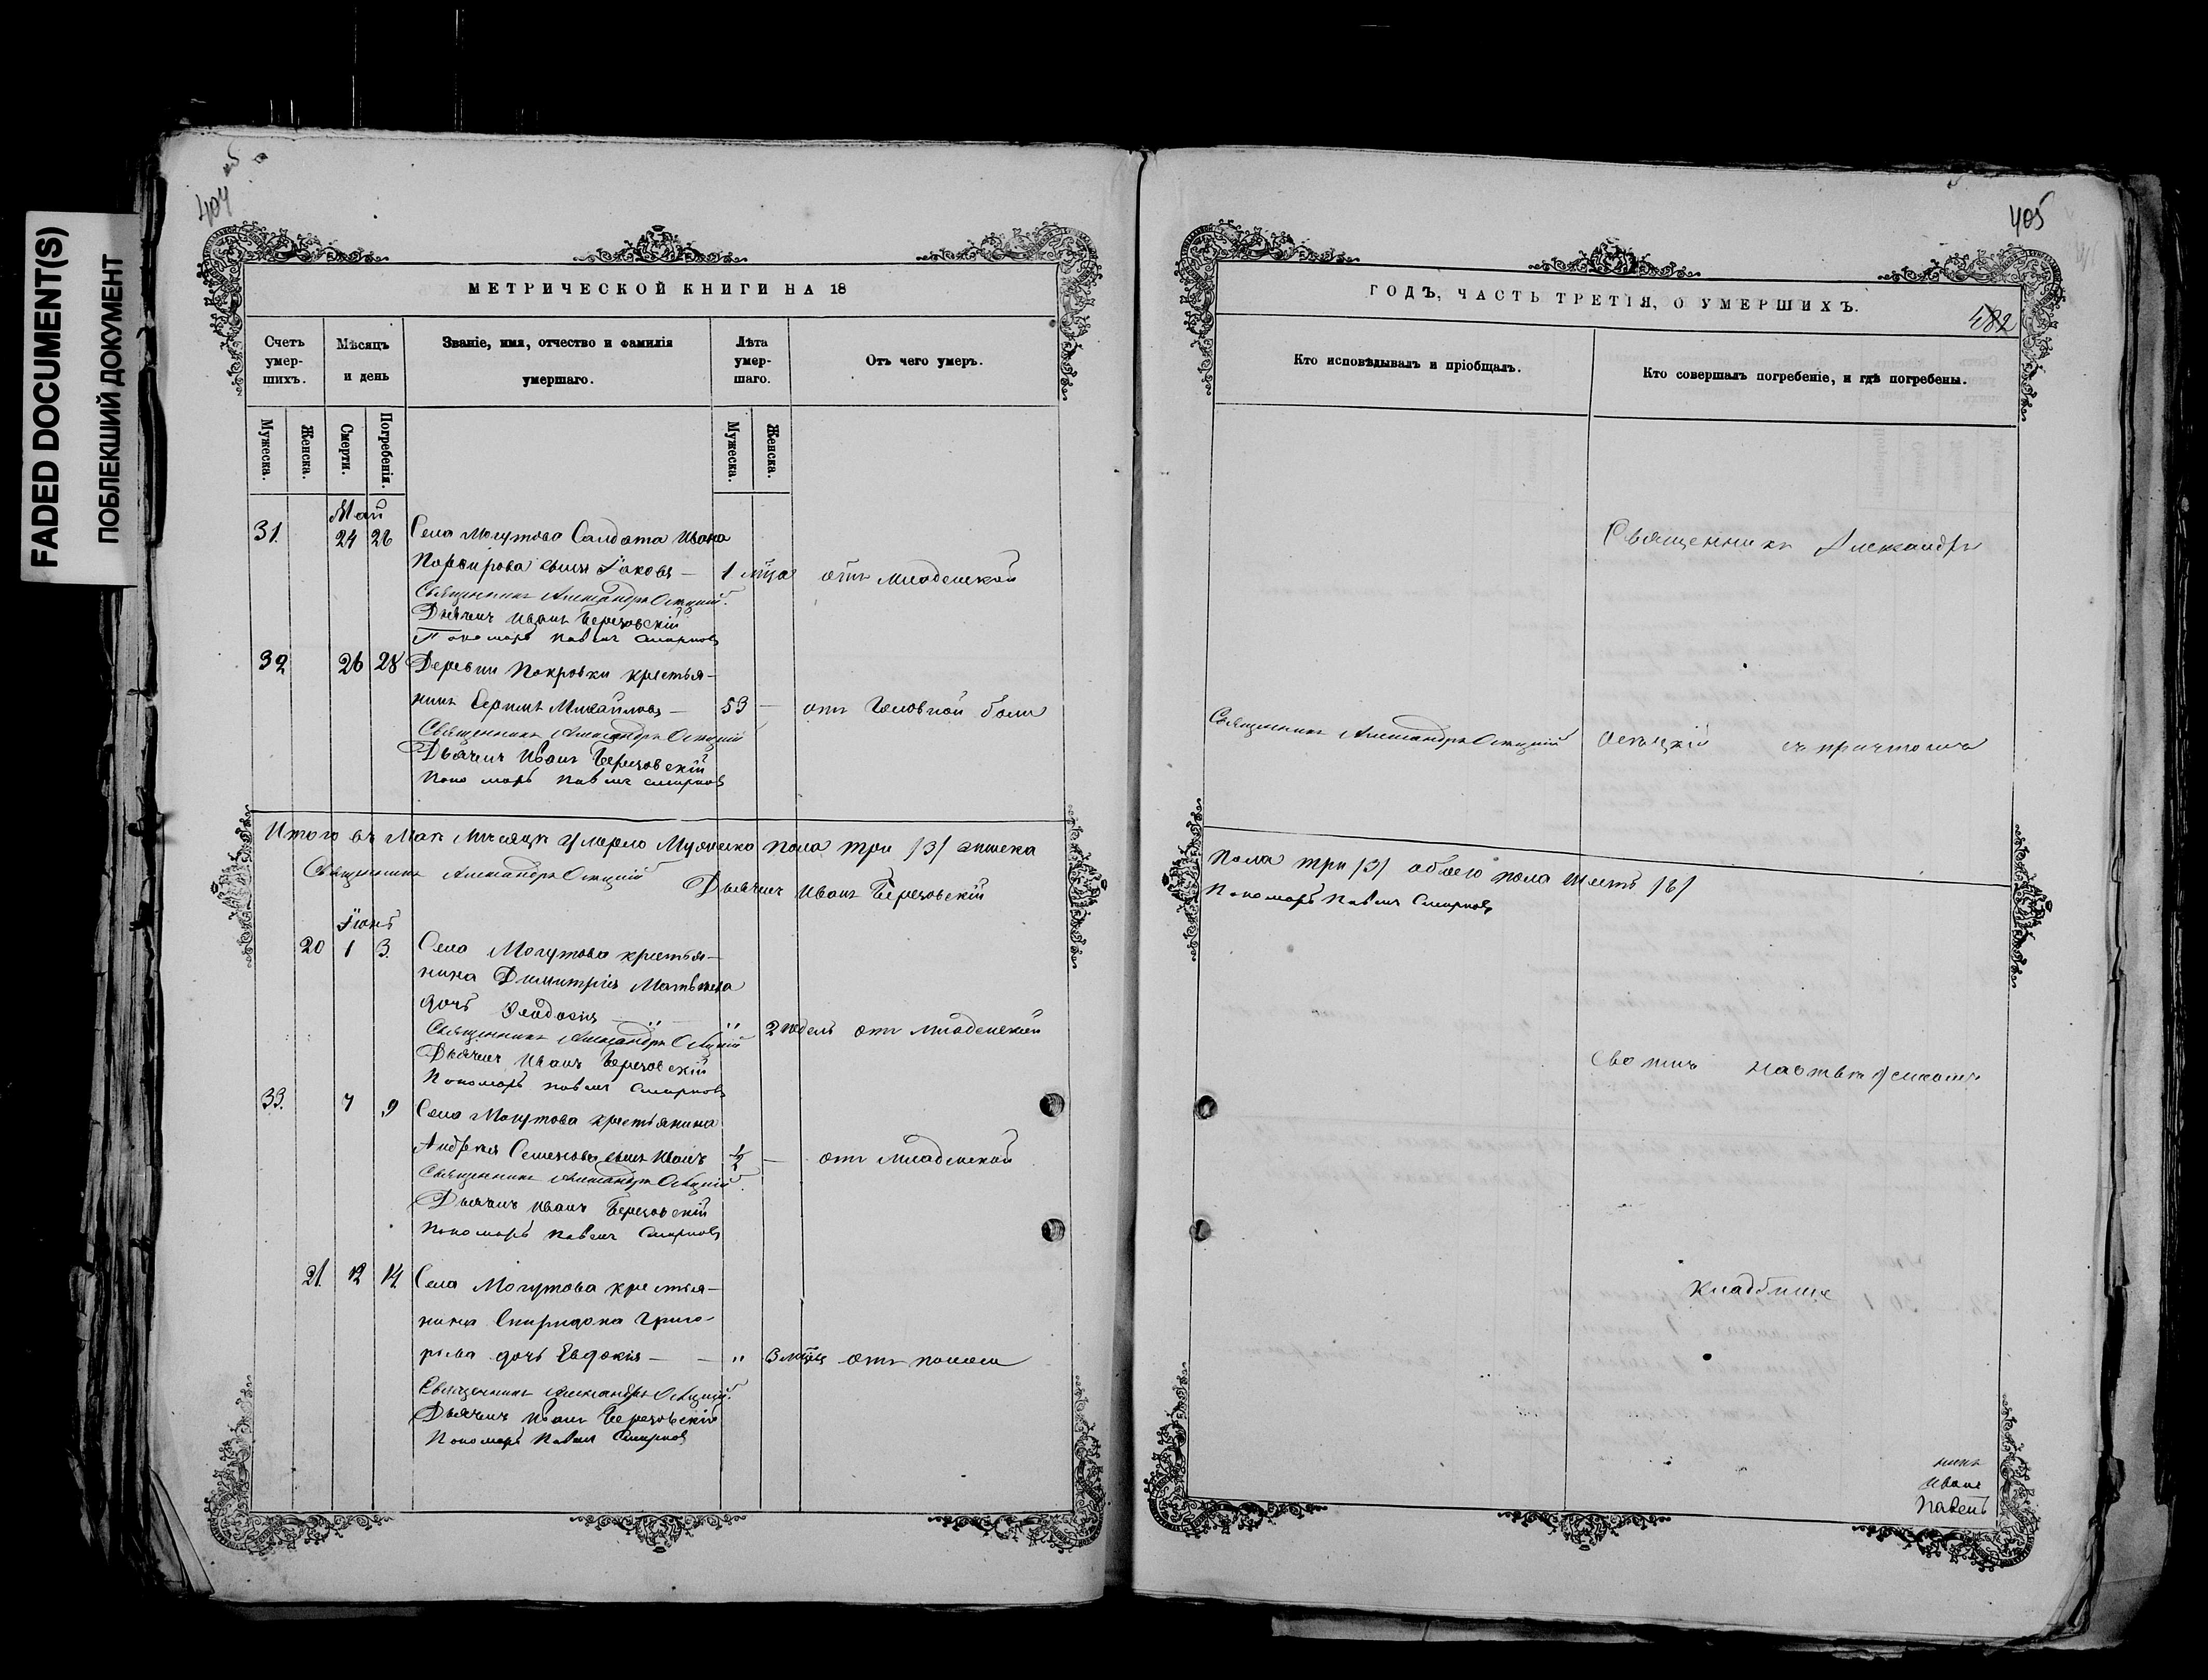 FADED DOCUMENT(S)
ПОБЛЕКШИЙ ДОКУМЕНТ
404
МЕТРИЧЕСКОЙ КНИГИ НА 18
Счетъ умер-шихъ.
Мѣсяцъ и день
Званіе, имя, отчество и фамилія умершаго.
Лѣта умер-шаго.
Отъ чего умеръ.
Мужеска.
Женска.
Смерти.
Погребенія.
Мужеска.
Женска.
Май
31. 24 26 Села Могутова Салдата Ивана
Порфирова сынъ Іаковъ — 1 мѣца отъ младенской
Священникъ Александръ
Дьячекъ Иванъ Березовскій
Пономарь Павелъ Смирновъ
32 26 28 Деревни Покровки крестья-
нинъ Сергѣй Михайловъ — 53 — отъ головной боли
Священникъ Александръ
Дьячекъ Иванъ Березовскій
Пономарь Павелъ Смирновъ
Итого въ Маѣ мѣсяцѣ умерло Мужеска пола три /3/ женска
Священникъ Александръ
Дьячекъ Иванъ Березовскій
Іюнь
20 1 3. Села Могутова крестья-
нина Димитрія Матвѣева
дочь Ѳеодосія — " — " 2 недель отъ младенской
Священникъ Александръ
Дьячекъ Иванъ Березовскій
Пономарь Павелъ Смирновъ
33. 7 9 Села Могутова крестьянина
Андрея Семенова сынъ Иванъ 1/2 — отъ младенской
Священникъ Александръ
Дьячекъ Иванъ Березовскій
Пономарь Павелъ Смирновъ
21. 12 14. Села Могутова крестья-
нина Спиридона Григо-
рьева дочь Евдокія — — " 3 мѣцъ отъ поноса
Священникъ Александръ
Дьячекъ Иванъ Березовскій
Пономарь Павелъ Смирновъ
405
ГОДЪ, ЧАСТЬ ТРЕТІЯ, О УМЕРШИХЪ.
482
Кто исповѣдывалъ и пріобщалъ.
Кто совершалъ погребеніе, и гдѣ погребены.
Священникъ Александръ
Священникъ Александръ
съ причтомъ
пола три /3/ обоего пола шесть /6/
Пономарь Павелъ Смирновъ
кладбище
Иванъ
Павелъ